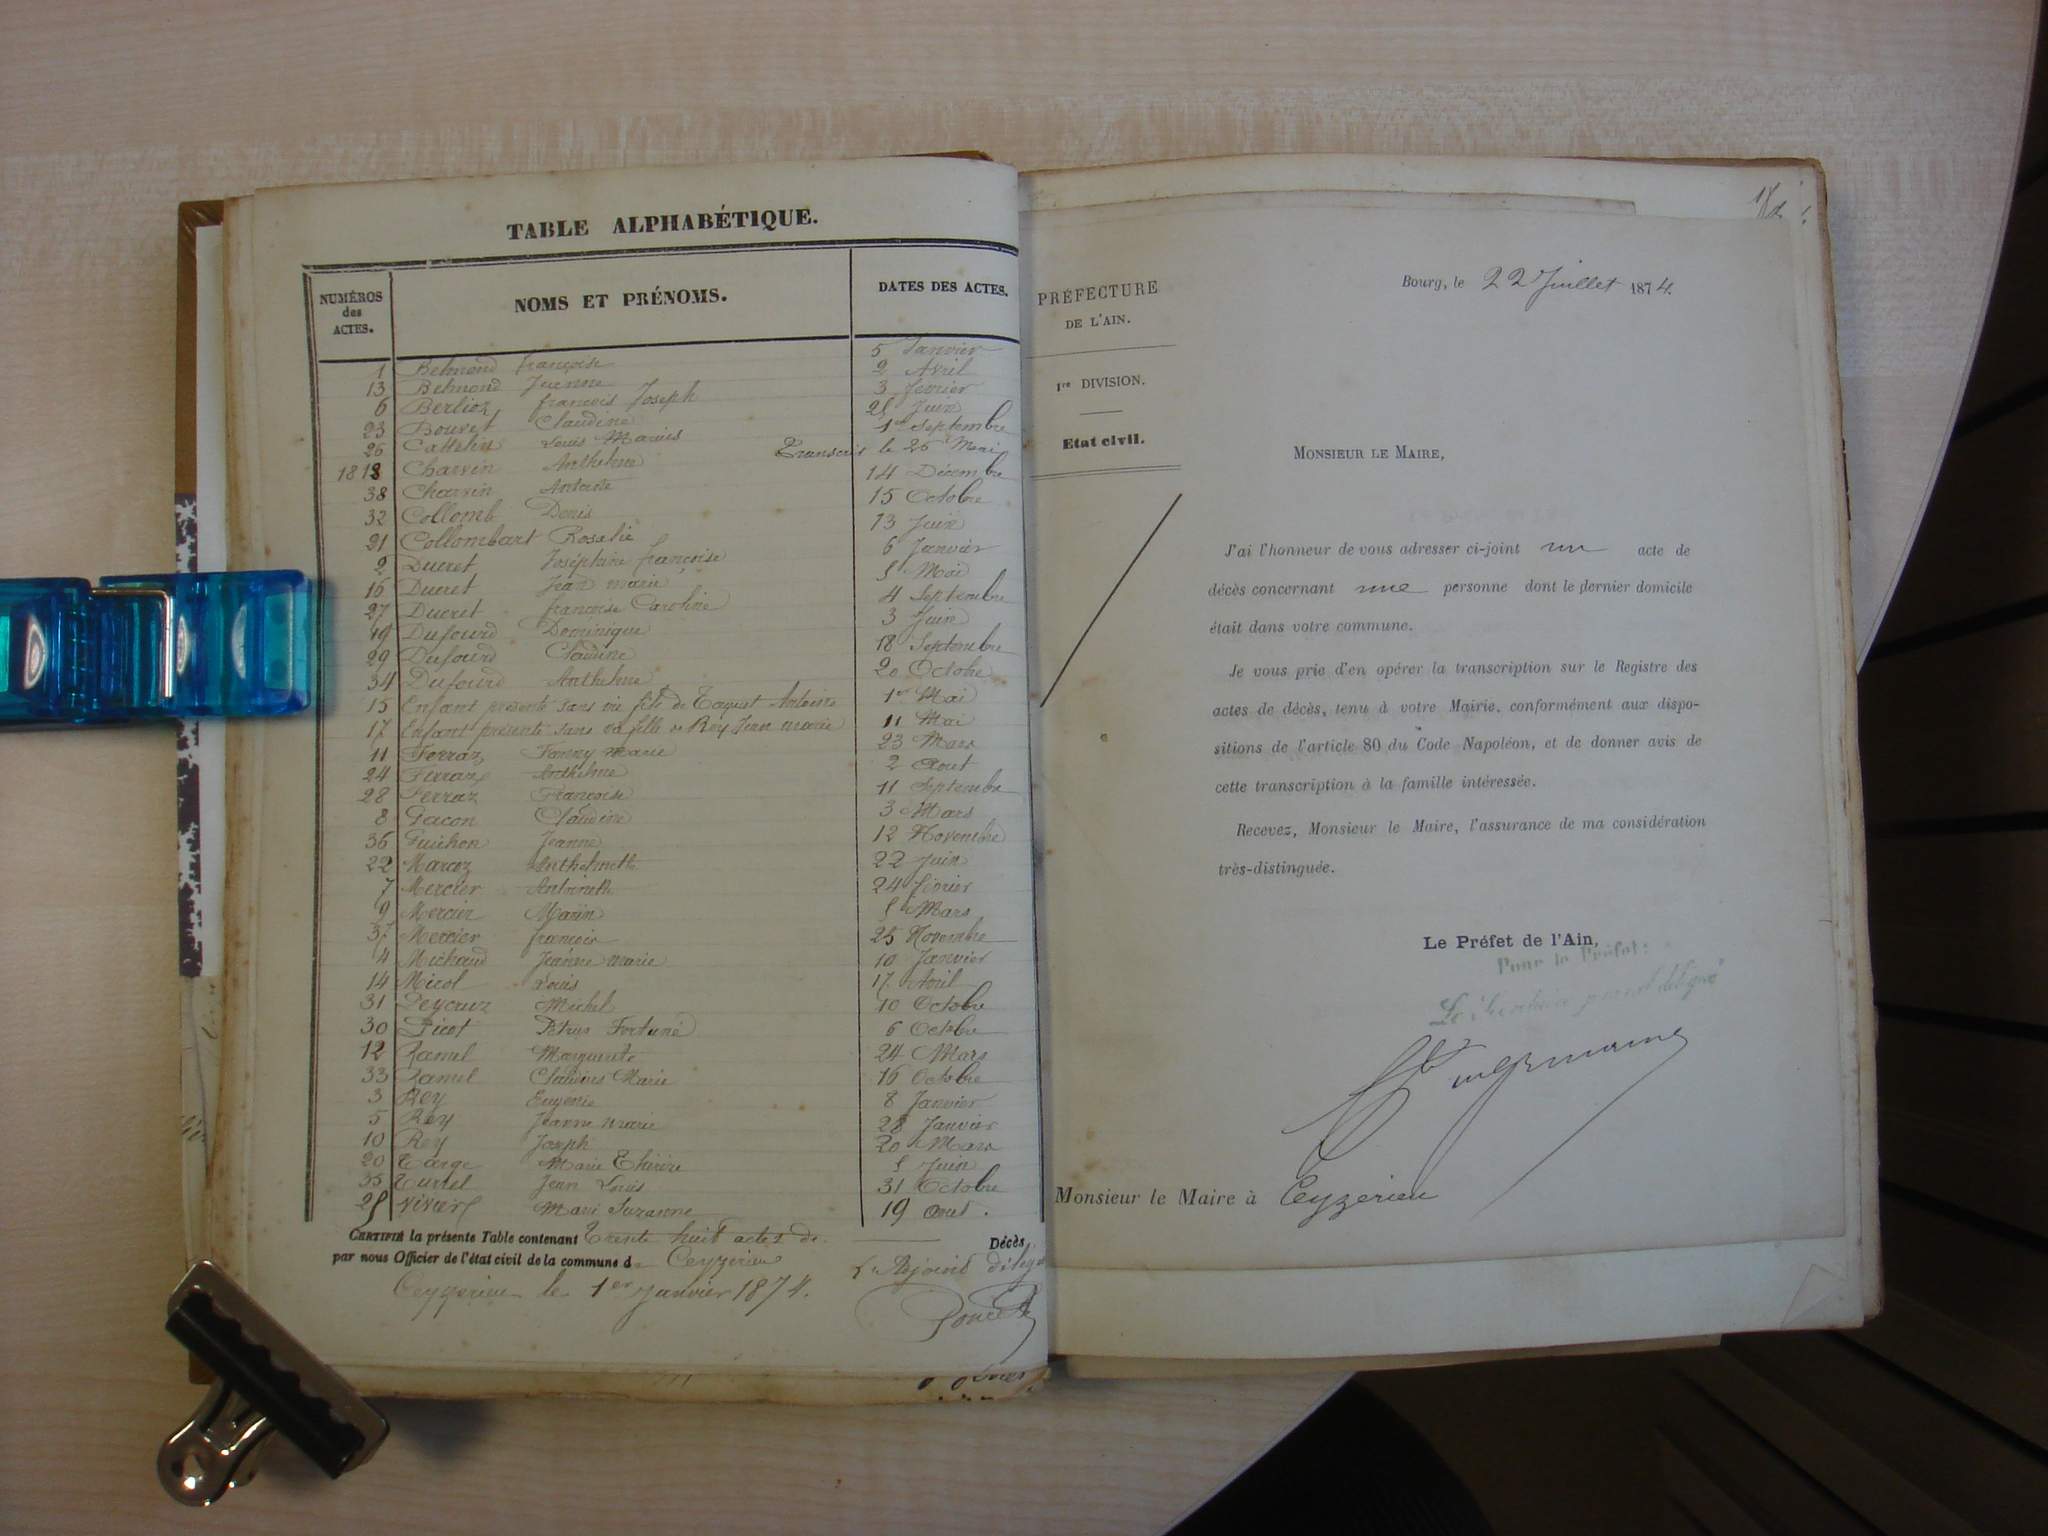 TABLE ALPHABÉTIQUE.
NUMÉROS des ACTES. NOMS ET PRÉNOMS. DATES DES ACTES.
1 Belmond françoise 5 Janvier
13 Belmond Jeanne 2 Avril
6 Berlioz françois Joseph 3 fevrier
23 Bouvet Claudine 25 Juin
26 Cattelin Louis Marius 1er Septembre
1818 Charvin Anthelme Transcrit le 26 Mai
38 Charvin Antoine 14 Décembre
32 Collomb Denis 15 Octobre
21 Collombart Rosalie 13 Juin
2 Ducret Joséphine françoise 6 Janvier
16 Ducret Jean marie 5 Mai
27 Ducret françoise Caroline 4 Septembre
19 Dufourd Dominique 3 Juin
29 Dufourd Claudine 18 Septembre
34 Dufourd Anthelme 20 Octobre
15 Enfant présenté sans vie fils de Taguet Antoine 1er Mai
17 Enfant présenté sans vie fille de Rey Jean marie 11 Mai
11 Ferraz Fanny marie 23 Mars
24 Ferraz Anthelme 2 Aout
28 Ferraz Françoise 11 Septembre
8 Gacon Claudine 3 Mars
36 Guichon Jeanne 12 Novembre
22 Marcoz Anthelmette 22 Juin
7 Mercier Antoinette 24 fevrier
9 Mercier Marin 5 Mars
37 Mercier françois 25 Novembre
4 Michaud Jeanne marie 10 Janvier
14 Micol Louis 17 Avril
31 Peycruz Michel 10 Octobre
30 Picot Pétrus Fortuné 6 Octobre
12 Ramel Marguerite 24 Mars
33 Ramel Claudius Marie 16 Octobre
3 Rey Eugenie 8 Janvier
5 Rey Jeanne marie 28 Janvier
10 Rey Joseph 20 Mars
20 Targe Marie 5 Juin
35 Turtel Jean Louis 31 Octobre
25 Vivier Marie Suzanne 19 Aout.
CERTIFIÉ la présente Table contenant Trente huit actes de Décès
par nous Officier de l'état civil de la commune d Ceyzerieu
L'Adjoint délégué
Ceyzerieu le 1er Janvier 1874.
Poncet
PRÉFECTURE
DE L'AIN.
1re DIVISION.
Etat civil.
Bourg, le 22 Juillet 1874.
MONSIEUR LE MAIRE,
J'ai l'honneur de vous adresser ci-joint un acte de
décès concernant une personne dont le dernier domicile
était dans votre commune.
Je vous prie d'en opérer la transcription sur le Registre des
actes de décès, tenu à votre Mairie, conformément aux dispo-
sitions de l'article 80 du Code Napoléon, et de donner avis de
cette transcription à la famille intéressée.
Recevez, Monsieur le Maire, l'assurance de ma considération
très-distinguée.
Le Préfet de l'Ain,
Pour le Préfet:
Le Secrétaire général délégué
Monsieur le Maire à Ceyzerieu